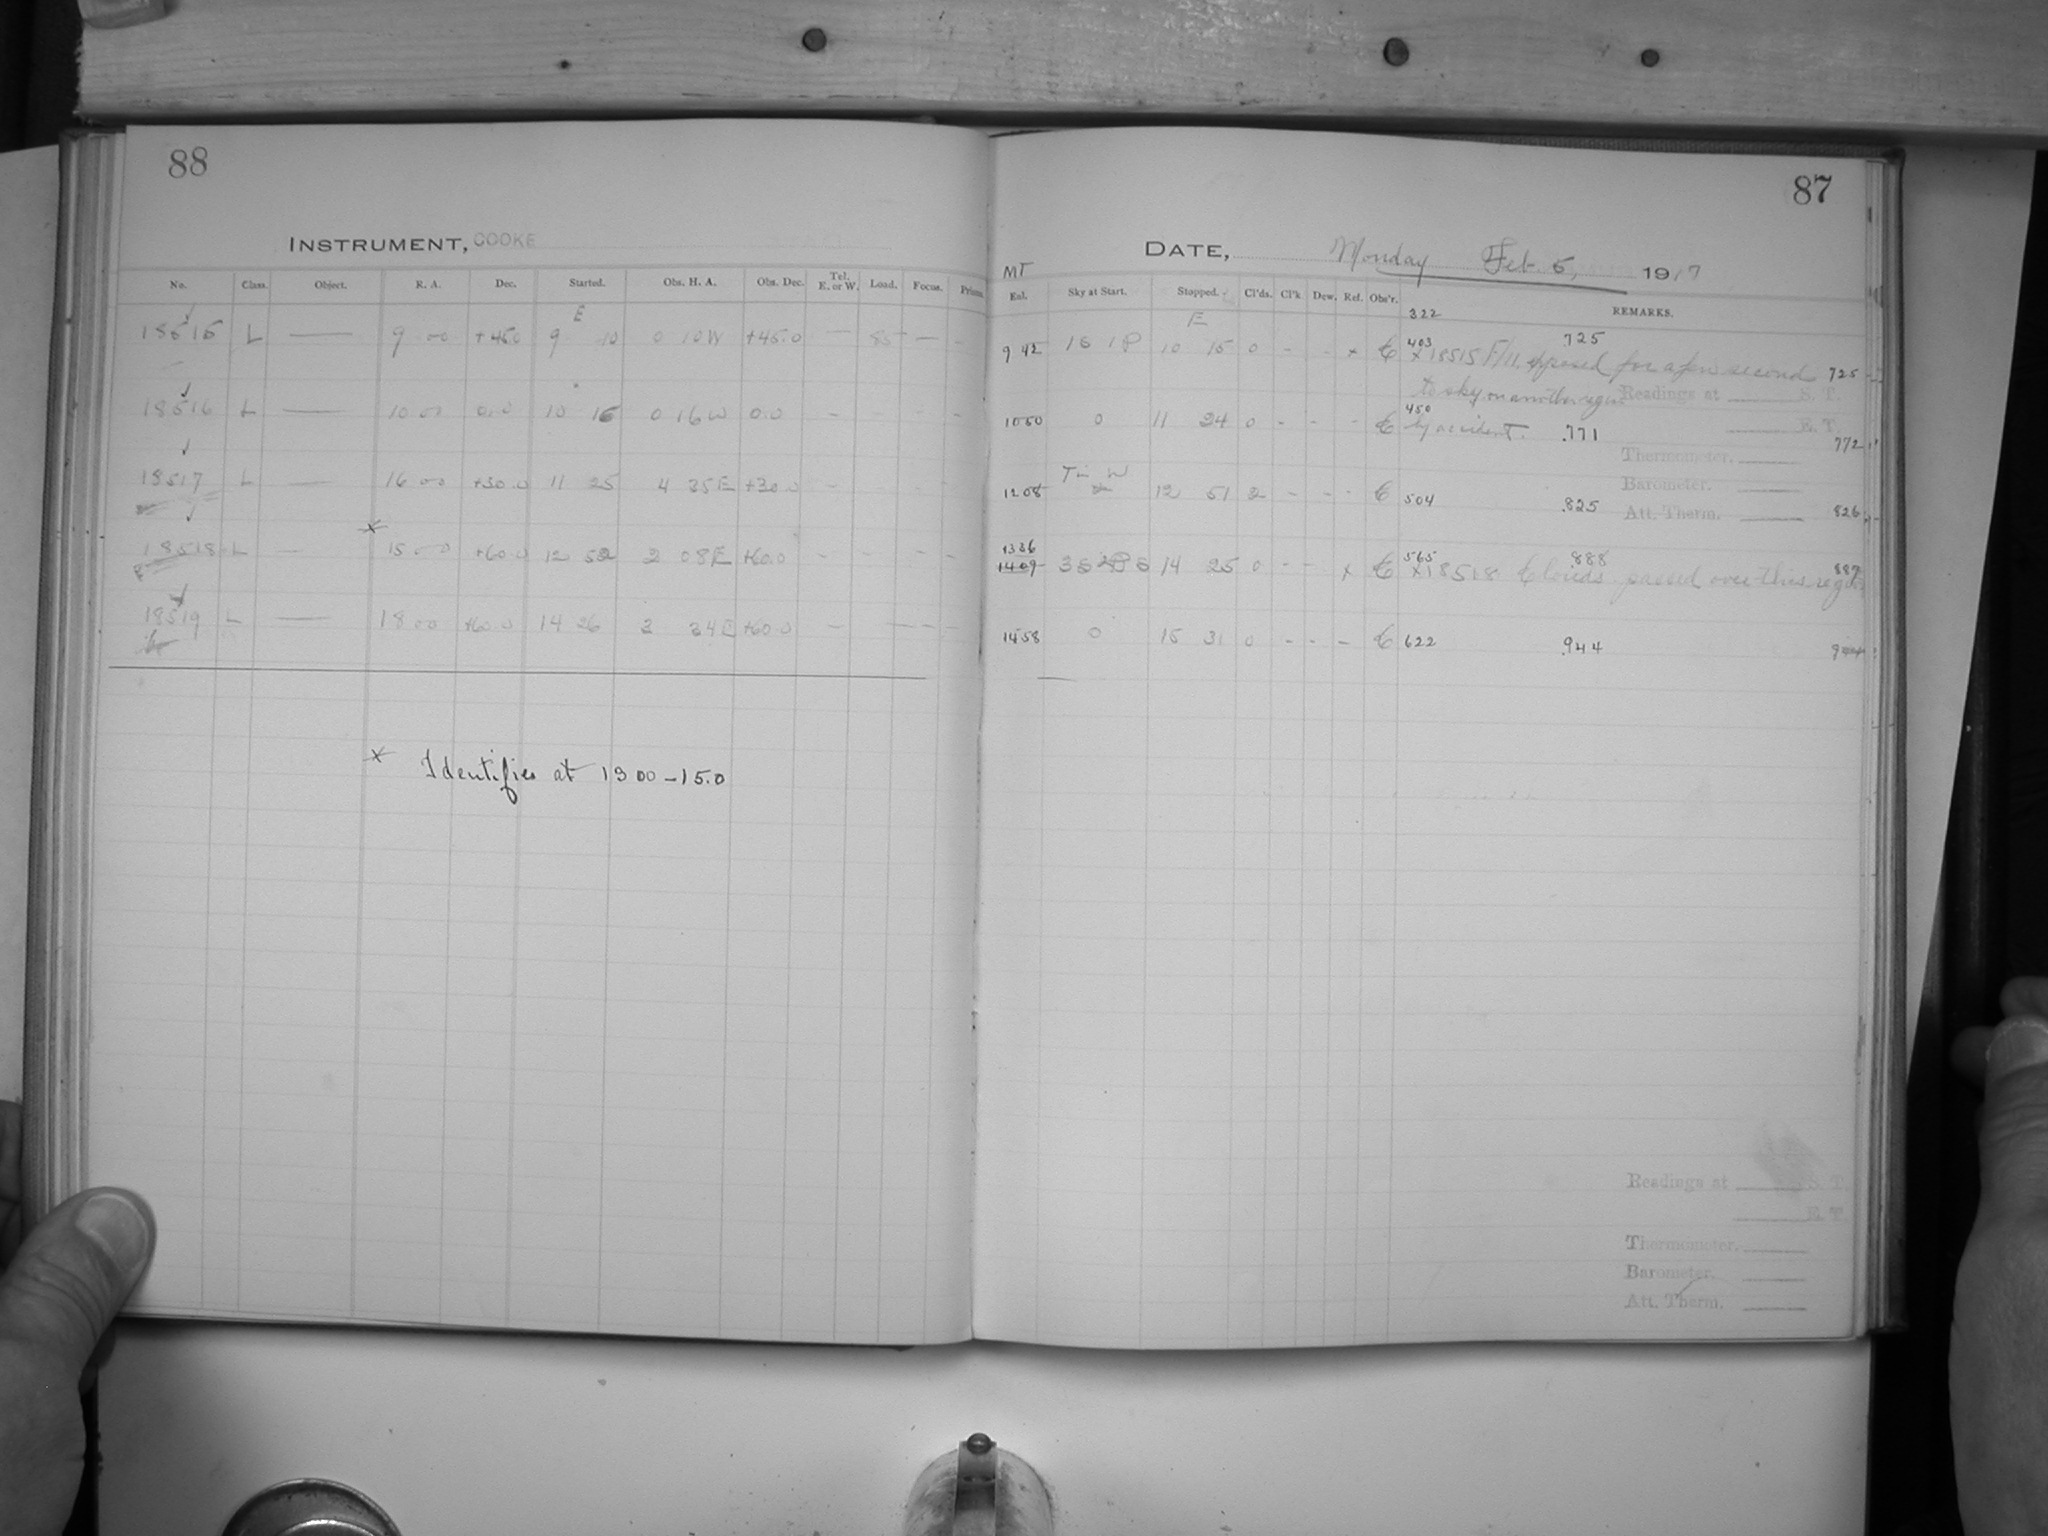 88
INSTRUMENT, COOKE
No. Class. Object. R. A. Dec. Started. Obs. H. A. Obs. Dec. Tel. E. or W. Load. Focus. Prisms.
E
18515 L — 9 00 +45.0 9 10 0 10 W +45.0 — 85 — -
18516 L — 10 00 0.0 10 16 0 16 W 0.0 - - - -
18517 L — 16 00 +30.0 11 25 4 35 E +30.0 - - - -
*
18518 L — 15 00 +60.0 12 52 2 08 E +60.0 - - - -
18519 L — 18 00 +60.0 14 26 3 34 E +60.0 - - - -
* Identifies at 13 00 -15.0
87
DATE, Monday Feb. 5, 1917
MT
Exl. Sky at Start. Stopped. Cl'ds. Cl'k Dew. Ref. Obs'r. REMARKS.
322
E
9 42 1 S 1 P 10 15 0 - - x C 403 .725
x 18515 F/11. exposed for a few second 725
to sky on another region
1050 0 11 24 0 - - - C 450 by accident. .771 772
1208 12 51 2 - - - C 504 .825 826
1336
1409 14 25 0 - - x C 565 .888 887
x 18518 Clouds passed over this region
1458 0 15 31 0 - - - C 622 .944
Readings at S. T.
E. T.
Thermometer.
Barometer.
Att. Therm.
Readings at S. T.
E. T.
Thermometer.
Barometer.
Att. Therm.